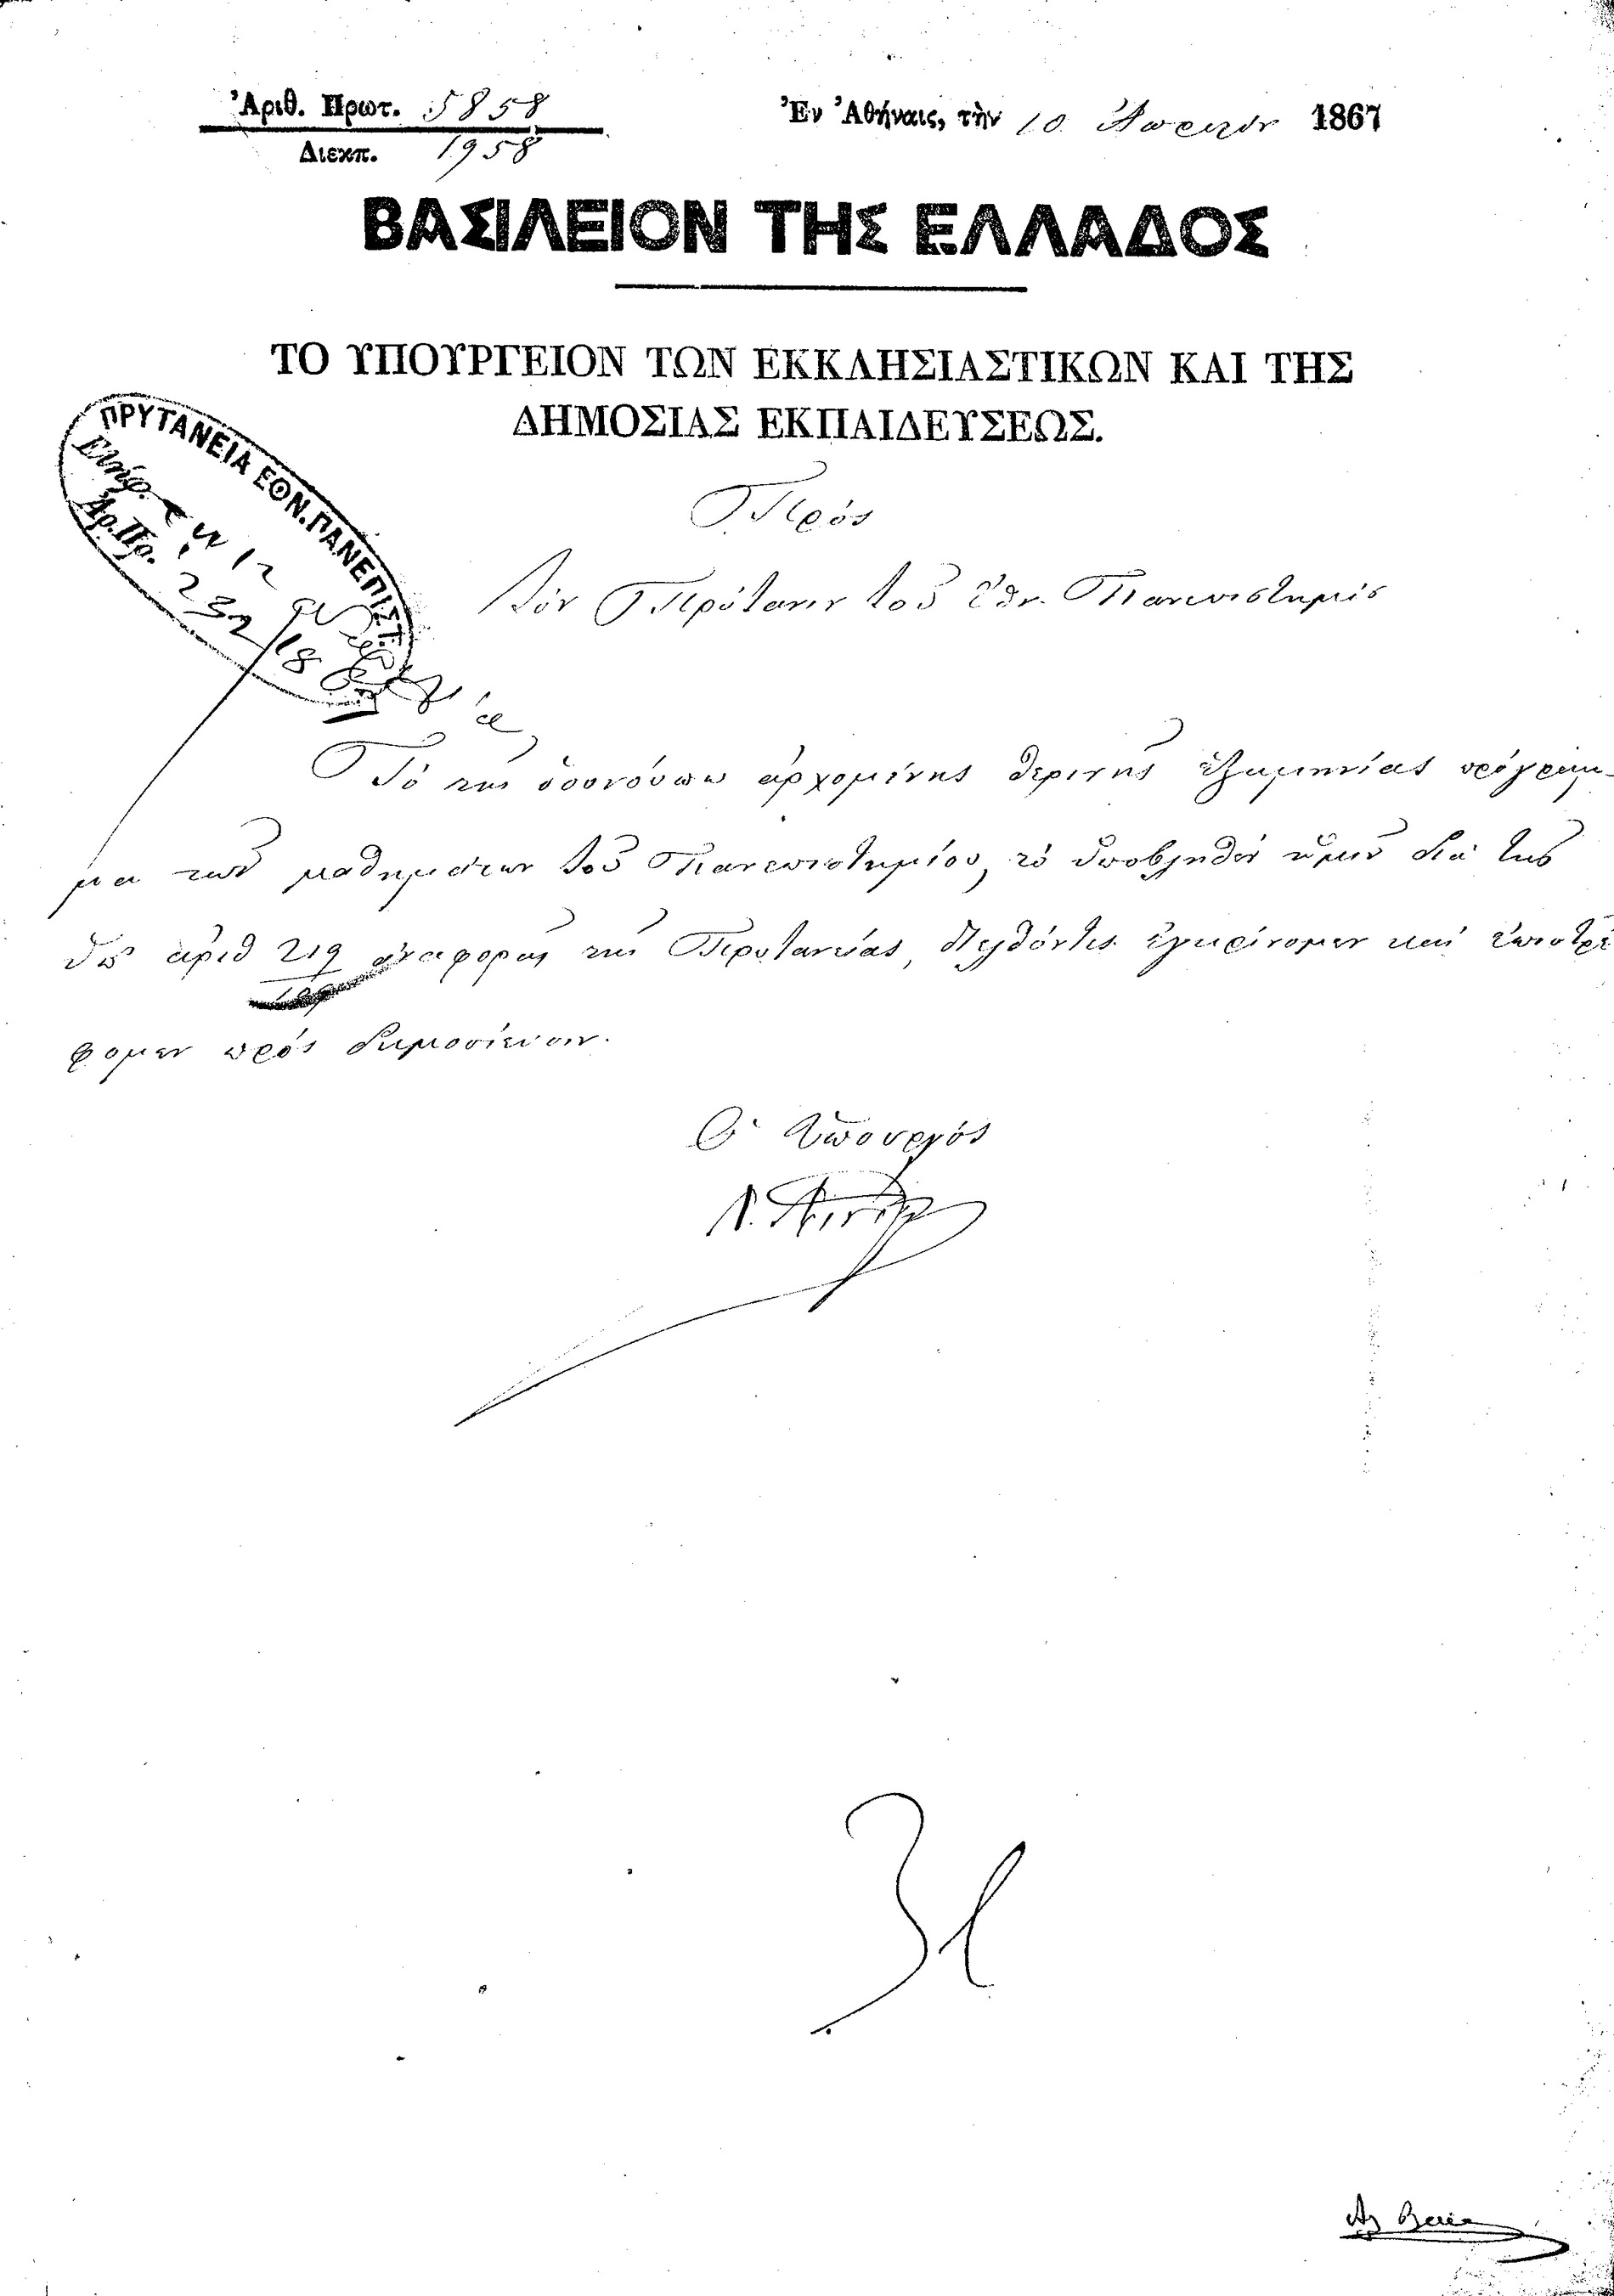 Ἀριθ. Πρωτ. 5858
Διεκπ. 1958
Ἐν Ἀθήναις, τὴν 10 Ἀπριλίου 1867
ΒΑΣΙΛΕΙΟΝ ΤΗΣ ΕΛΛΑΔΟΣ
ΤΟ ΥΠΟΥΡΓΕΙΟΝ ΤΩΝ ΕΚΚΛΗΣΙΑΣΤΙΚΩΝ ΚΑΙ ΤΗΣ
ΔΗΜΟΣΙΑΣ ΕΚΠΑΙΔΕΥΣΕΩΣ.
ΠΡΥΤΑΝΕΙΑ ΕΘΝ. ΠΑΝΕΠΙΣΤ
Ἀρ. Πρ. 232
Πρὸς
τὸν Πρύτανιν τοῦ Ἐθν. Πανεπιστημίου
Τὸ τῆς ὁσονούπω ἀρχομένης θερινῆς ἑξαμηνίας πρόγραμ-
μα τῶν μαθημάτων τοῦ Πανεπιστημίου, τὸ ὑποβληθὲν ἡμῖν διὰ τῆς
ὑπ' ἀριθ 219 ἀναφορᾶς τῆς Πρυτανείας, ἐγκρίνομεν καὶ ἐπιστρέ
φομεν πρὸς δημοσίευσιν.
Ὁ Ὑπουργὸς